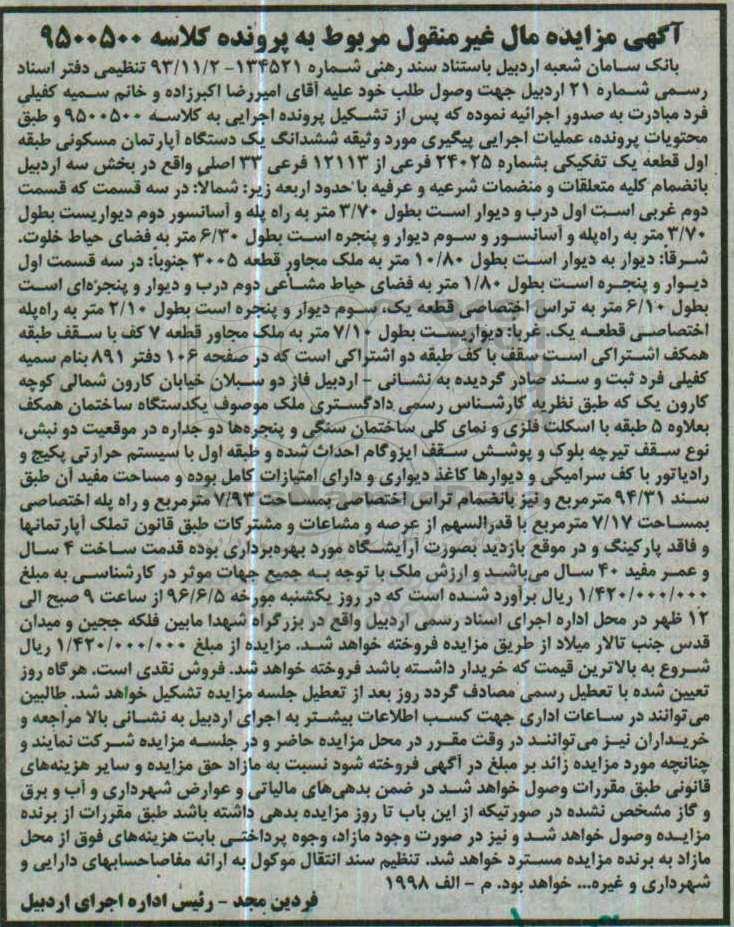 آگهی مزایده مال غیرمنقول مربوط به پرونده کلاسه ۹۵۰۰۵۰۰
بانک سامان شعبه اردبیل باستناد سند رهنی شماره ۱۳۴۵۲۱- ۹۳/۱۱/۲ تنظیمی دفتر اسناد
رسمی شماره ۲۱ اردبیل جهت وصول طلب خود علیه آقای امیررضا اکبرزاده و خانم سمیه کفیلی
فرد مبادرت به صدور اجرائیه نموده که پس از تشکیل پرونده اجرایی به کلاسه ۹۵۰۰۵۰۰ و طبق
محتویات پرونده، عملیات اجرایی پیگیری مورد وثیقه ششدانگ یک دستگاه آپارتمان مسکونی طبقه
اول قطعه یک تفکیکی بشماره ۲۴۰۲۵ فرعی از ۱۲۱۱۳ فرعی ۳۳ اصلی واقع در بخش سه اردبیل
بانضمام کلیه متعلقات و منضمات شرعیه و عرفیه با حدود اربعه زیر: شمالا: در سه قسمت که قسمت
دوم غربی است اول درب و دیوار است بطول ۳/۷۰ متر به راه پله و آسانسور دوم دیواریست بطول
۳/۷۰ متر به راه‌پله و آسانسور و سوم دیوار و پنجره است بطول ۶/۳۰ متر به فضای حیاط خلوت.
شرقا: دیوار به دیوار است بطول ۱۰/۸۰ متر به ملک مجاور قطعه ۳۰۰۵ جنوبا: در سه قسمت اول
دیوار و پنجره است بطول ۱/۸۰ متر به فضای حیاط مشاعی دوم درب و دیوار و پنجره‌ای است
بطول ۶/۱۰ متر به تراس اختصاصی قطعه یک، سوم دیوار و پنجره است بطول ۲/۱۰ متر به راه‌پله
اختصاصی قطعه یک. غربا: دیواریست بطول ۷/۱۰ متر به ملک مجاور قطعه ۷ کف با سقف طبقه
همکف اشتراکی است سقف با کف طبقه دو اشتراکی است که در صفحه ۱۰۶ دفتر ۸۹۱ بنام سمیه
کفیلی فرد ثبت و سند صادر گردیده به نشانی - اردبیل فاز دو سبلان خیابان کارون شمالی کوچه
کارون یک که طبق نظریه کارشناس رسمی دادگستری ملک موصوف یکدستگاه ساختمان همکف
بعلاوه ۵ طبقه با اسکلت فلزی و نمای کلی ساختمان سنگی و پنجره‌ها دو جداره در موقعیت دو نبش،
نوع سقف تیرچه بلوک و پوشش سقف ایزوگام احداث شده و طبقه اول با سیستم حرارتی پکیج و
رادیاتور با کف سرامیکی و دیوارها کاغذ دیواری و دارای امتیازات کامل بوده و مساحت مفید آن طبق
سند ۹۴/۳۱ مترمربع و نیز بانضمام تراس اختصاصی بمساحت ۷/۹۳ مترمربع و راه پله اختصاصی
بمساحت ۷/۱۷ مترمربع با قدرالسهم از عرصه و مشاعات و مشترکات طبق قانون تملک آپارتمانها
و فاقد پارکینگ و در موقع بازدید بصورت آرایشگاه مورد بهره‌برداری بوده قدمت ساخت ۴ سال
و عمر مفید ۴۰ سال می‌باشد و ارزش ملک با توجه به جمیع جهات موثر در کارشناسی به مبلغ
۱/۴۲۰/۰۰۰/۰۰۰ ریال برآورد شده است که در روز یکشنبه مورخه ۹۶/۶/۵ از ساعت ۹ صبح الی
۱۲ ظهر در محل اداره اجرای اسناد رسمی اردبیل واقع در بزرگراه شهدا مابین فلکه ججین و میدان
قدس جنب تالار میلاد از طریق مزایده فروخته خواهد شد. مزایده از مبلغ ۱/۴۲۰/۰۰۰/۰۰۰ ریال
شروع به بالاترین قیمت که خریدار داشته باشد فروخته خواهد شد. فروش نقدی است. هرگاه روز
تعیین شده با تعطیل رسمی مصادف گردد روز بعد از تعطیل جلسه مزایده تشکیل خواهد شد. طالبین
می‌توانند در ساعات اداری جهت کسب اطلاعات بیشتر به اجرای اردبیل به نشانی بالا مراجعه و
خریداران نیز می‌توانند در وقت مقرر در محل مزایده حاضر و در جلسه مزایده شرکت نمایند و
چنانچه مورد مزایده زائد بر مبلغ در آگهی فروخته شود نسبت به مازاد حق مزایده و سایر هزینه‌های
قانونی طبق مقررات وصول خواهد شد در ضمن بدهی‌های مالیاتی و عوارض شهرداری و آب و برق
و گاز مشخص نشده در صورتیکه از این باب تا روز مزایده بدهی داشته باشد طبق مقررات از برنده
مزایده وصول خواهد شد و نیز در صورت وجود مازاد، وجوه پرداختی بابت هزینه‌های فوق از محل
مازاد به برنده مزایده مسترد خواهد شد. تنظیم سند انتقال موکول به ارائه مفاصاحسابهای دارایی و
شهرداری و غیره... خواهد بود. م - الف ۱۹۹۸
فردین مجد - رئیس اداره اجرای اردبیل